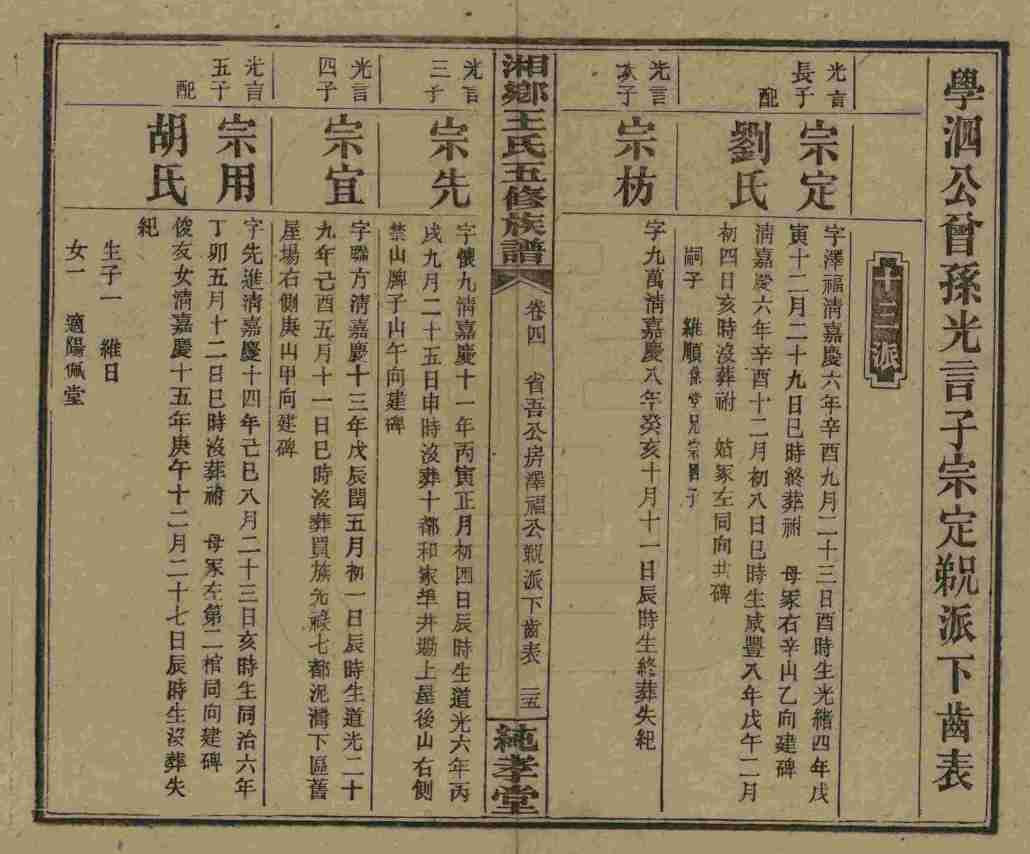 學泗公曾孫光言子宗定覡派下齒表
十三派
光言
長子
宗定
字澤福淸嘉慶六年辛酉九月二十三日酉時生光緒四年戊
寅十二月二十九日巳時終葬祔 母冢右辛山乙向建碑
配
劉氏
淸嘉慶六年辛酉十二月初八日巳時生咸豐八年戊午二月
初四日亥時沒葬祔 姑冢左同向共碑
嗣子 維順
光言
次子
宗枋
字九萬淸嘉慶八年癸亥十月十一日辰時生終葬失紀
湘鄉王氏五修族譜
卷四 省吾公房澤福公覡派下齒表 三五
純孝堂
光言
三子
宗先
字懷九淸嘉慶十一年丙寅正月初四日辰時生道光六年丙
戌九月二十五日申時沒葬十都和家埠井塘上屋後山右側
禁山牌子山午向建碑
光言
四子
宗宜
字聯方淸嘉慶十三年戊辰閏五月初一日辰時生道光二十
九年己酉五月十一日巳時沒葬買族先祿七都泥灣下區舊
屋場右側庚山甲向建碑
光言
五子
宗用
字先進淸嘉慶十四年己巳八月二十三日亥時生同治六年
丁卯五月十二日巳時沒葬祔 母冢左第二棺同向建碑
配
胡氏
俊友女淸嘉慶十五年庚午十二月二十七日辰時生沒葬失
紀
生子一 維日
女一 適陽佩堂